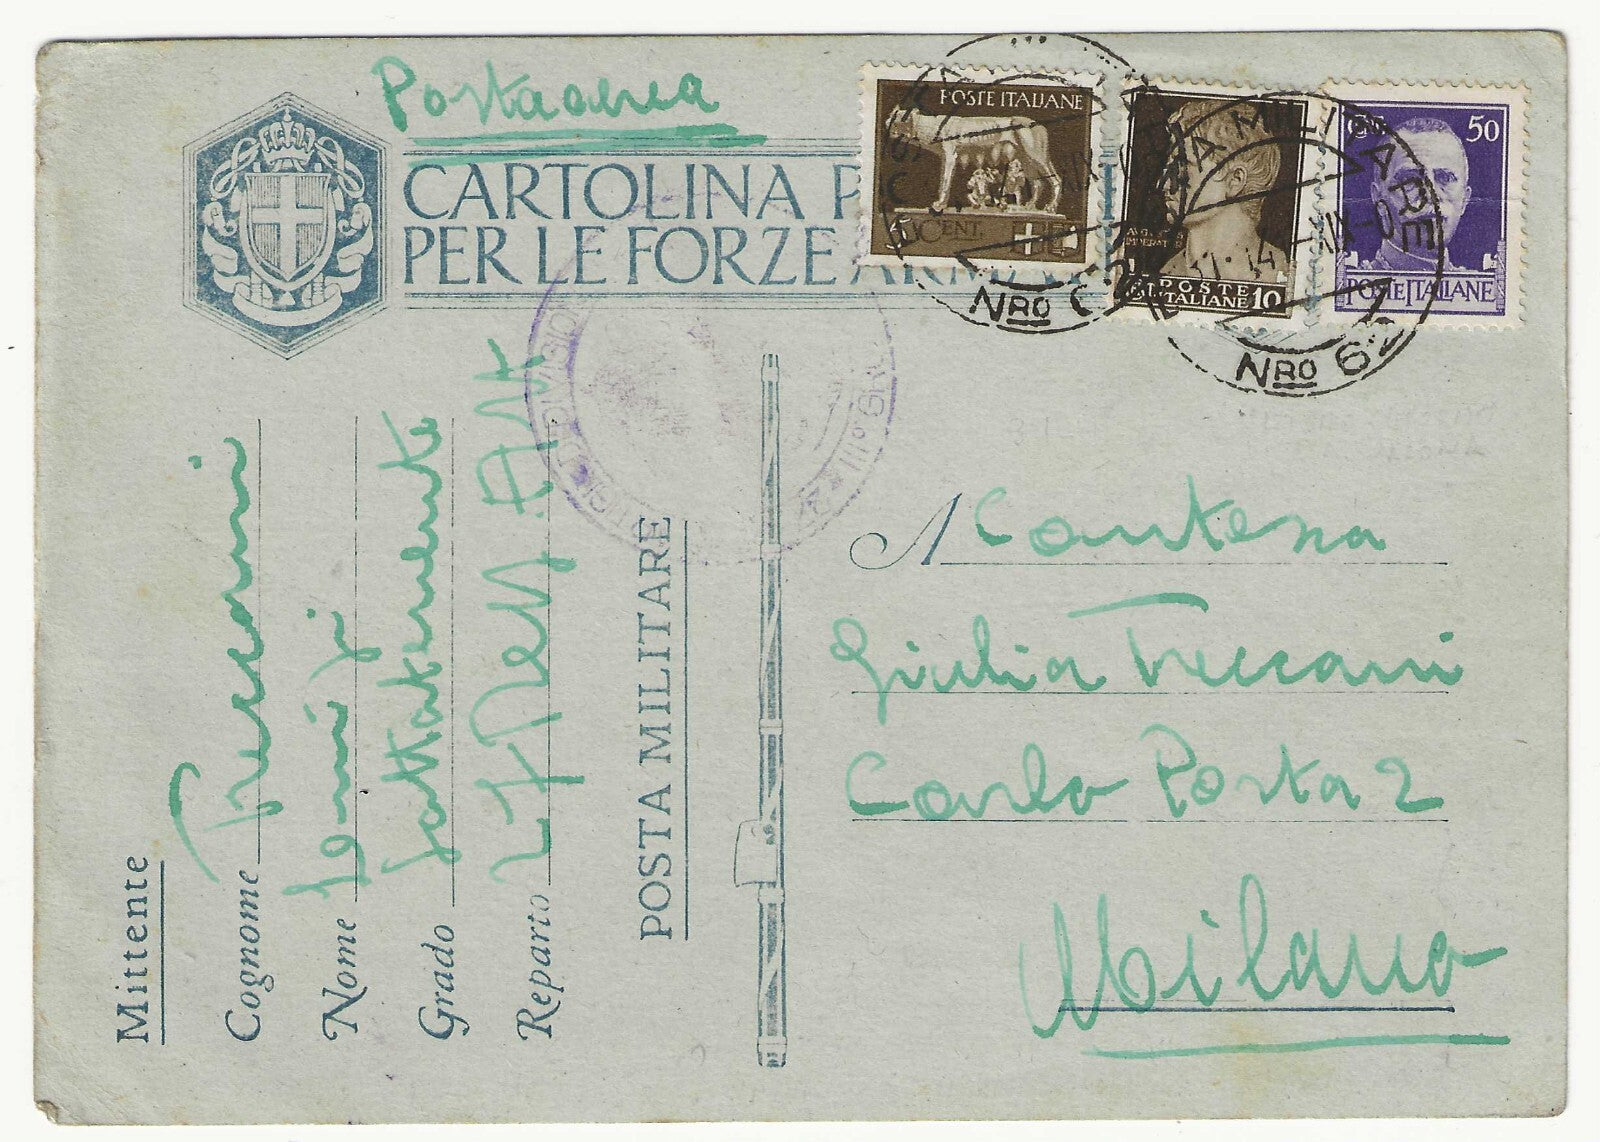 Posta aerea
CARTOLINA P
PER LE FORZE ARMA
POSTE ITALIANE
CENT.
POSTE
ITALIANE 10
50
POSTE ITALIANE
MILITARE
Nro 62
Mittente
Cognome Treccani
Nome
Grado Sottotenente
Reparto
POSTA MILITARE
A Contessa
Giulia Treccani
Carlo Porta 2
Milano